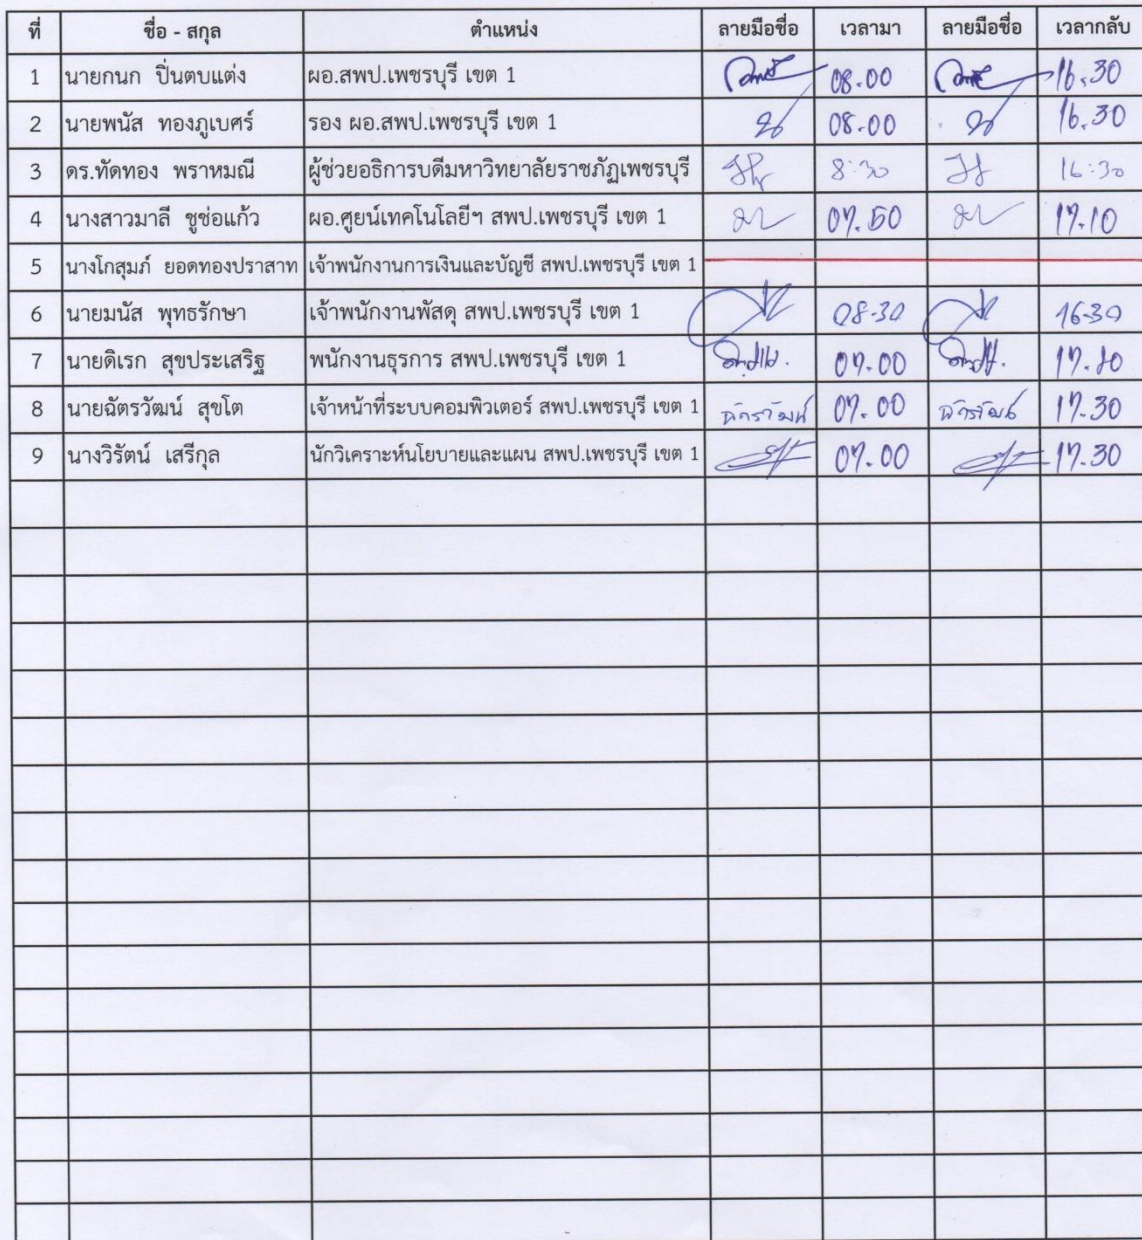 ที่ ชื่อ - สกุล ตำแหน่ง ลายมือชื่อ เวลามา ลายมือชื่อ เวลากลับ
1 นายกนก ปิ่นตบแต่ง ผอ.สพป.เพชรบุรี เขต 1 08.00 16.30
2 นายพนัส ทองภูเบศร์ รอง ผอ.สพป.เพชรบุรี เขต 1 08.00 16.30
3 ดร.ทัดทอง พราหมณี ผู้ช่วยอธิการบดีมหาวิทยาลัยราชภัฏเพชรบุรี 8:30 16:30
4 นางสาวมาลี ชูช่อแก้ว ผอ.ศูยน์เทคโนโลยีฯ สพป.เพชรบุรี เขต 1 07.50 17.10
5 นางโกสุมภ์ ยอดทองปราสาท เจ้าพนักงานการเงินและบัญชี สพป.เพชรบุรี เขต 1
6 นายมนัส พุทธรักษา เจ้าพนักงานพัสดุ สพป.เพชรบุรี เขต 1 08-30 16-30
7 นายดิเรก สุขประเสริฐ พนักงานธุรการ สพป.เพชรบุรี เขต 1 07.00
8 นายฉัตรวัฒน์ สุขโต เจ้าหน้าที่ระบบคอมพิวเตอร์ สพป.เพชรบุรี เขต 1 ฉัตรวัฒน์ 07.00 ฉัตรวัฒน์ 17.30
9 นางวิรัตน์ เสรีกุล นักวิเคราะห์นโยบายและแผน สพป.เพชรบุรี เขต 1 07.00 17.30